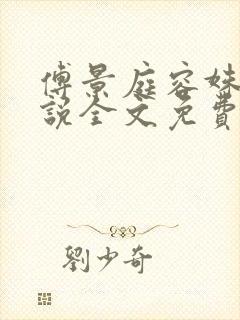 傅景庭容姝
說全文免費
劉少奇